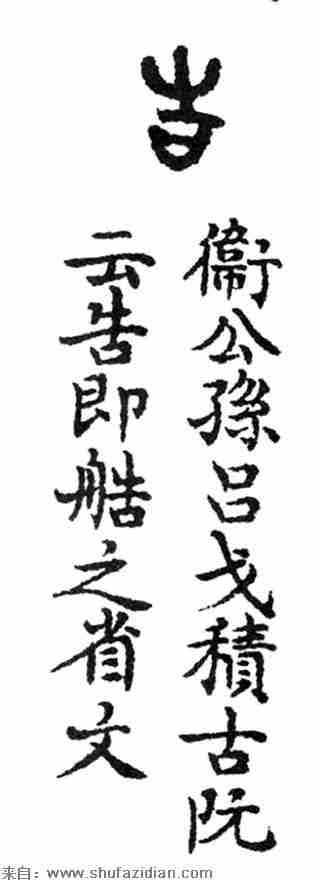 告
衞公孫呂戈積古阮
云告即艁之省文
来自：www.shufazidian.com